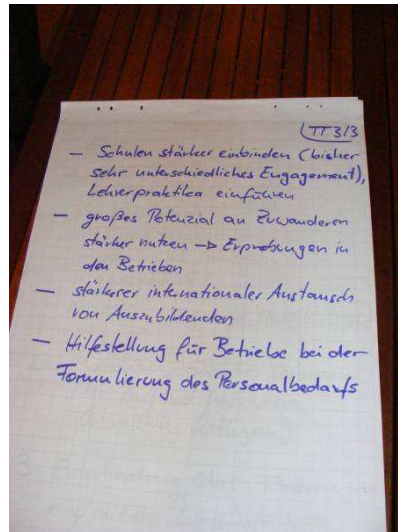 TT 3/3
– Schulen stärker einbinden (bisher
sehr unterschiedliches Engagement),
Lehrerpraktika einführen
– großes Potenzial an Zuwanderen
stärker nutzen –> Erprobungen in
den Betrieben
– stärkerer internationaler Austausch
von Auszubildenden
– Hilfestellung für Betriebe bei der
Formulierung des Personalbedarfs